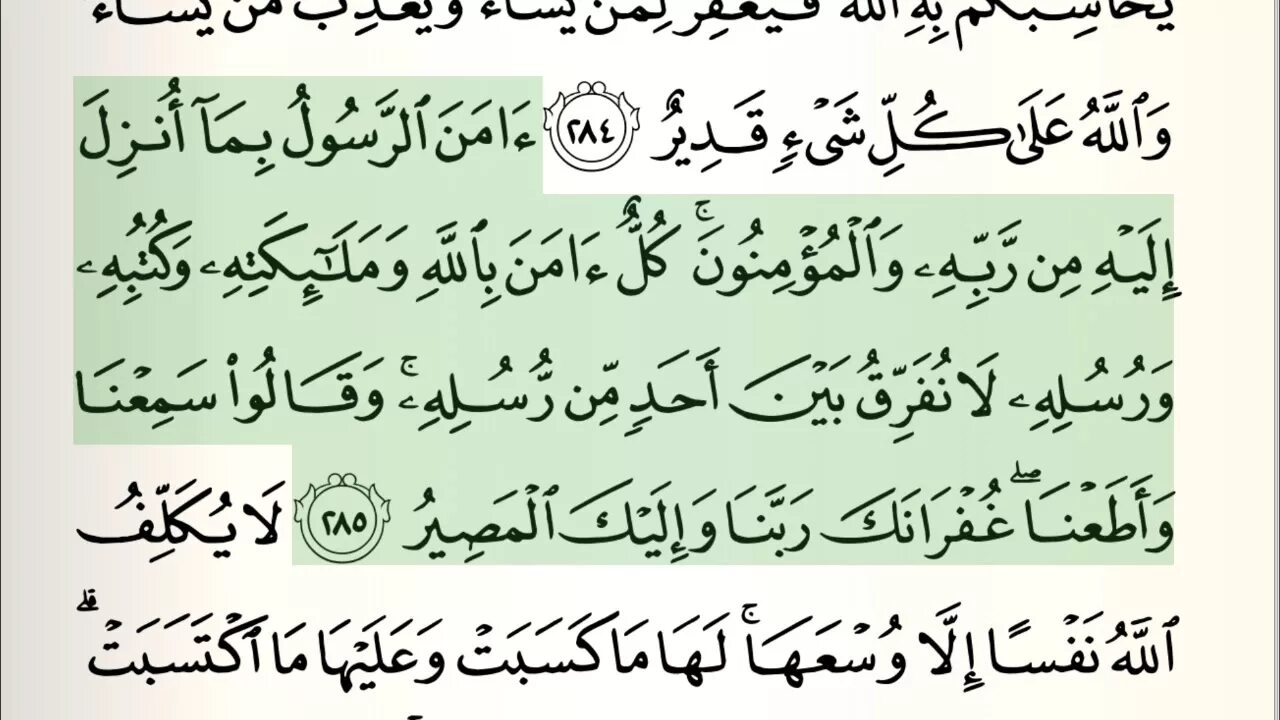 يُحَاسِبْكُم بِهِ ٱللَّهُ فَيَغْفِرُ لِمَن يَشَآءُ وَيُعَذِّبُ مَن يَشَآءُ
وَٱللَّهُ عَلَىٰ كُلِّ شَىْءٍ قَدِيرٌ ٢٨٤ ءَامَنَ ٱلرَّسُولُ بِمَآ أُنزِلَ
إِلَيْهِ مِن رَّبِّهِۦ وَٱلْمُؤْمِنُونَ ۚ كُلٌّ ءَامَنَ بِٱللَّهِ وَمَلَـٰٓئِكَتِهِۦ وَكُتُبِهِۦ
وَرُسُلِهِۦ لَا نُفَرِّقُ بَيْنَ أَحَدٍ مِّن رُّسُلِهِۦ ۚ وَقَالُوا۟ سَمِعْنَا
وَأَطَعْنَا ۖ غُفْرَانَكَ رَبَّنَا وَإِلَيْكَ ٱلْمَصِيرُ ٢٨٥ لَا يُكَلِّفُ
ٱللَّهُ نَفْسًا إِلَّا وُسْعَهَا ۚ لَهَا مَا كَسَبَتْ وَعَلَيْهَا مَا ٱكْتَسَبَتْ ۗ